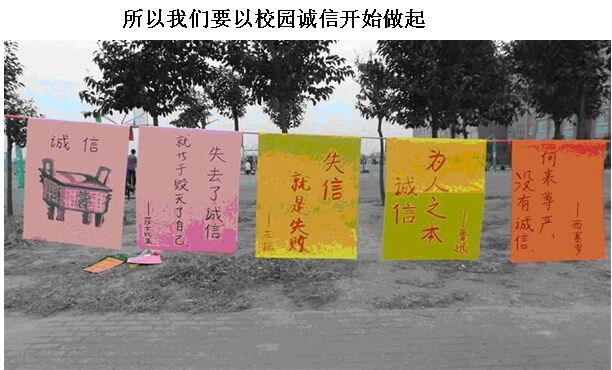 所以我们要以校园诚信开始做起
诚信
失去了诚信
就等于毁灭了自己
——莎士比亚
失信
就是失败
——左拉
诚信
为人之本
——鲁迅
没有诚信，
何来尊严，
——西塞罗